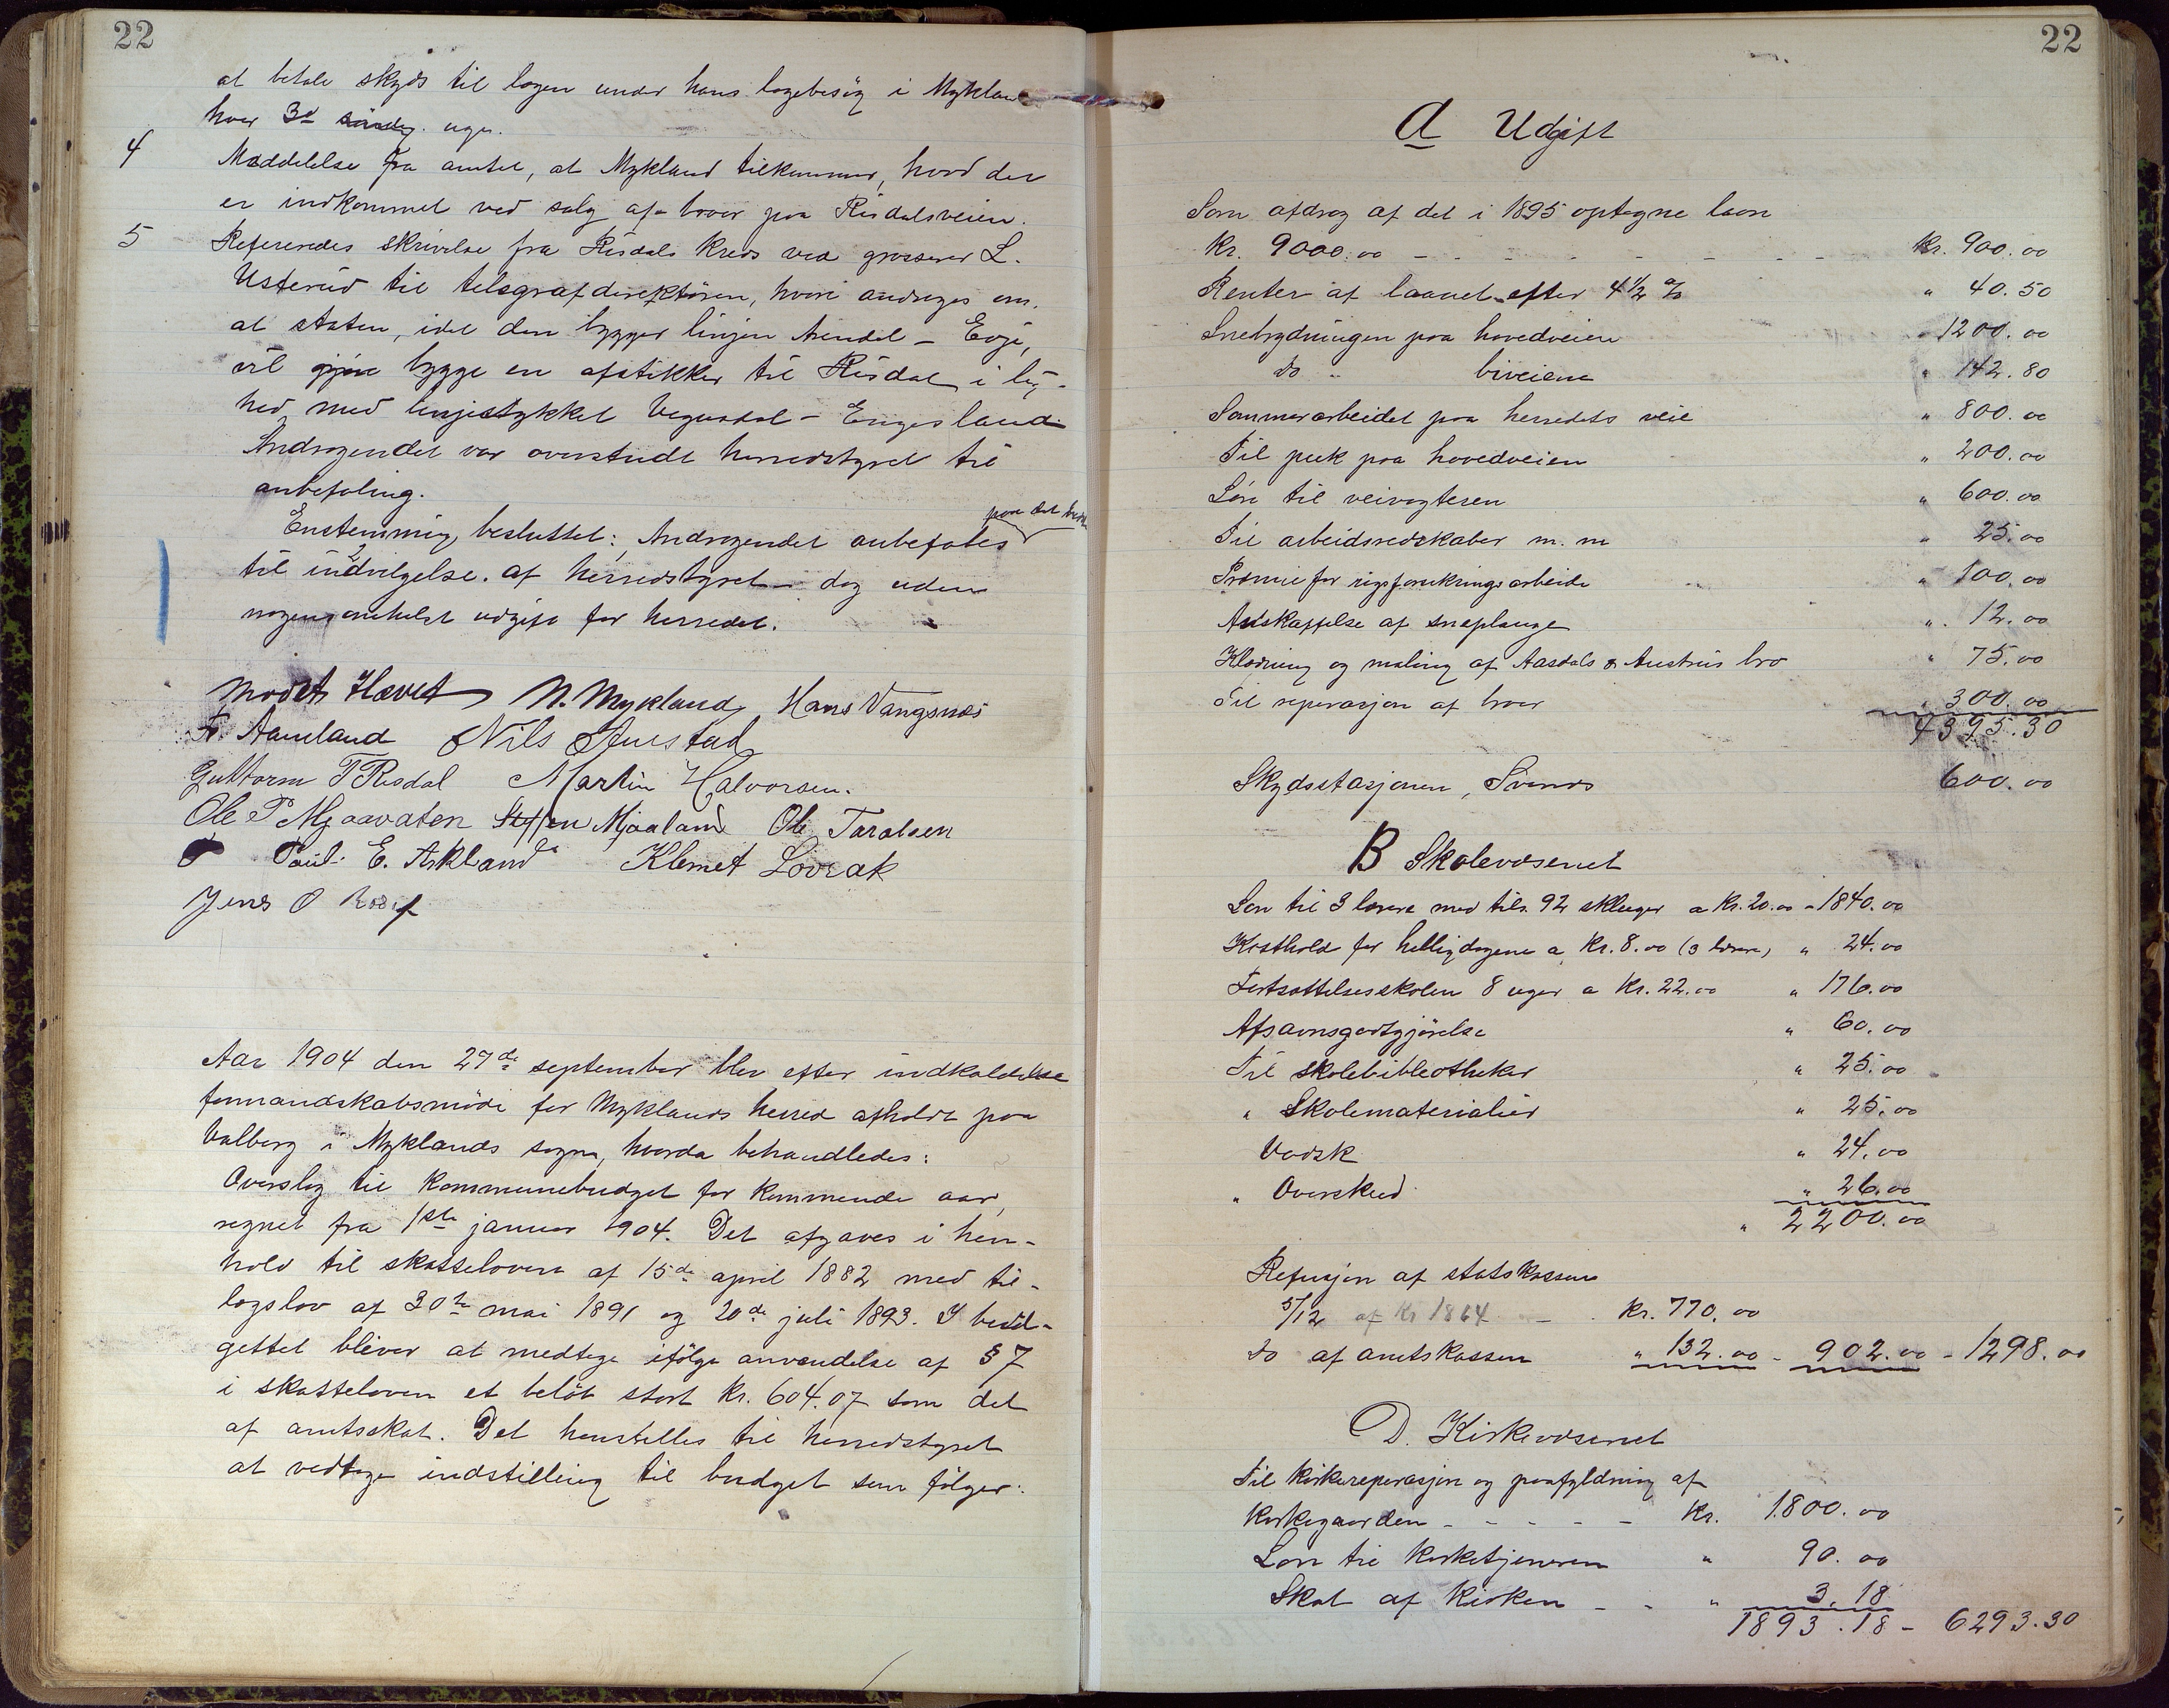 22
at betale skyds til lægen under hans lægebesög i Myklan
hver 3d söndag. uge.
4 Meddelelse fra amtet, at Mykland tilkommer, hvad der
er indkommet ved salg af broer paa Risdalsveien.
5 Refereredes skrivelse fra Risdals kreds ved grosserer L.
Usterud til telegrafdirektören, hvori andrages om.
at staten, idet den bygger linjen Arendal – Evje,
vil gjöre bygge en afstikker til Risdal i lig-
hed med linjestykket Vegusdal – Engesland.
Andragendet var oversendt herredstyret til
anbefaling.
Enstemmig besluttet: Andragendet anbefales paa det bedste
til indvilgelse. af herredstyret – dog uden
nogensomhelst udgift for herredet.
Mödet Hævet N. Mykland, Hans Vangsnes
F. Aamland Nils Austad
Guttorm T Risdal Martin Halvorsen.
Ole P Mjaavaten Steffen Mjaaland Ole Taralsen
Paul. E. Askland Klemet Lövrak
Jens O
Aar 1904 den 27de september blev efter indkaldelse
formandskabsmöde for Myklands herred afholdt paa
Valberg i Myklands sogn, hvorda behandledes:
Overslag til Kommunebudget for kommende aar,
regnet fra 1ste januar 1904. Det afgaves i hen-
hold til skatteloven af 15de april 1882 med til-
lægslov af 30te mai 1891 og 20de juli 1893. I bud-
gettet bliver at medtage ifölge anvendelse af § 7
i skatteloven et belöb stort kr. 604.07 som del
af amtsskat. Det henstilles til herredstyret
at vedtage indstilling til budget som fölger:
22
A Udgift
Som afdrag af det i 1895 optagne laan
kr. 9000.00 – – – – – – – kr. 900.00
Renter af laanet efter 4 1/2 % " 40.50
Snebrydningen paa hovedveien " 1200.00
do " biveiene " 142.80
Sommerarbeidet paa herredets veie " 800.00
Til puk paa hovedveien " 200.00
Lön til veivogteren " 600.00
Til arbeidsredskaber m. m " 25.00
Præmie for rigsforsikringsarbeide " 100.00
Anskaffelse af sneplouge " 12.00
Klædning og maling af Aasdals & Austrus bro " 75.00
Til reparasjon af broer " 300.00
4395.30
Skydsstasjonen, Svenes 600.00
B Skolevæsenet
Lön til 3 lærere med tils. 92 skleuger a Kr. 20.00 – 1840.00
Kosthold for helligdagene a Kr. 8.00 (3 lærere) " 24.00
Fortsættelsesskolen 8 uger a Kr. 22.00 " 176.00
Afsavnsgodtgjörelse " 60.00
Til skolebibliotheker " 25.00
" Skolematerialier " 25.00
Vadsk " 24.00
" Overskud " 26.00
" 2200.00
Refusjon af statskassen
5/12 af Kr 1864 – . Kr. 770.00
do af amtskassen " 132.00 – 902.00 – 1298.00
D. Kirkevæsenet
Til kirkereparasjon og paafyldning af
Kirkegaarden – – – – – Kr. 1800.00
Lön til Kirketjeneren " 90.00
Skat af Kirken – – " 3.18
1893.18 – 6293.30